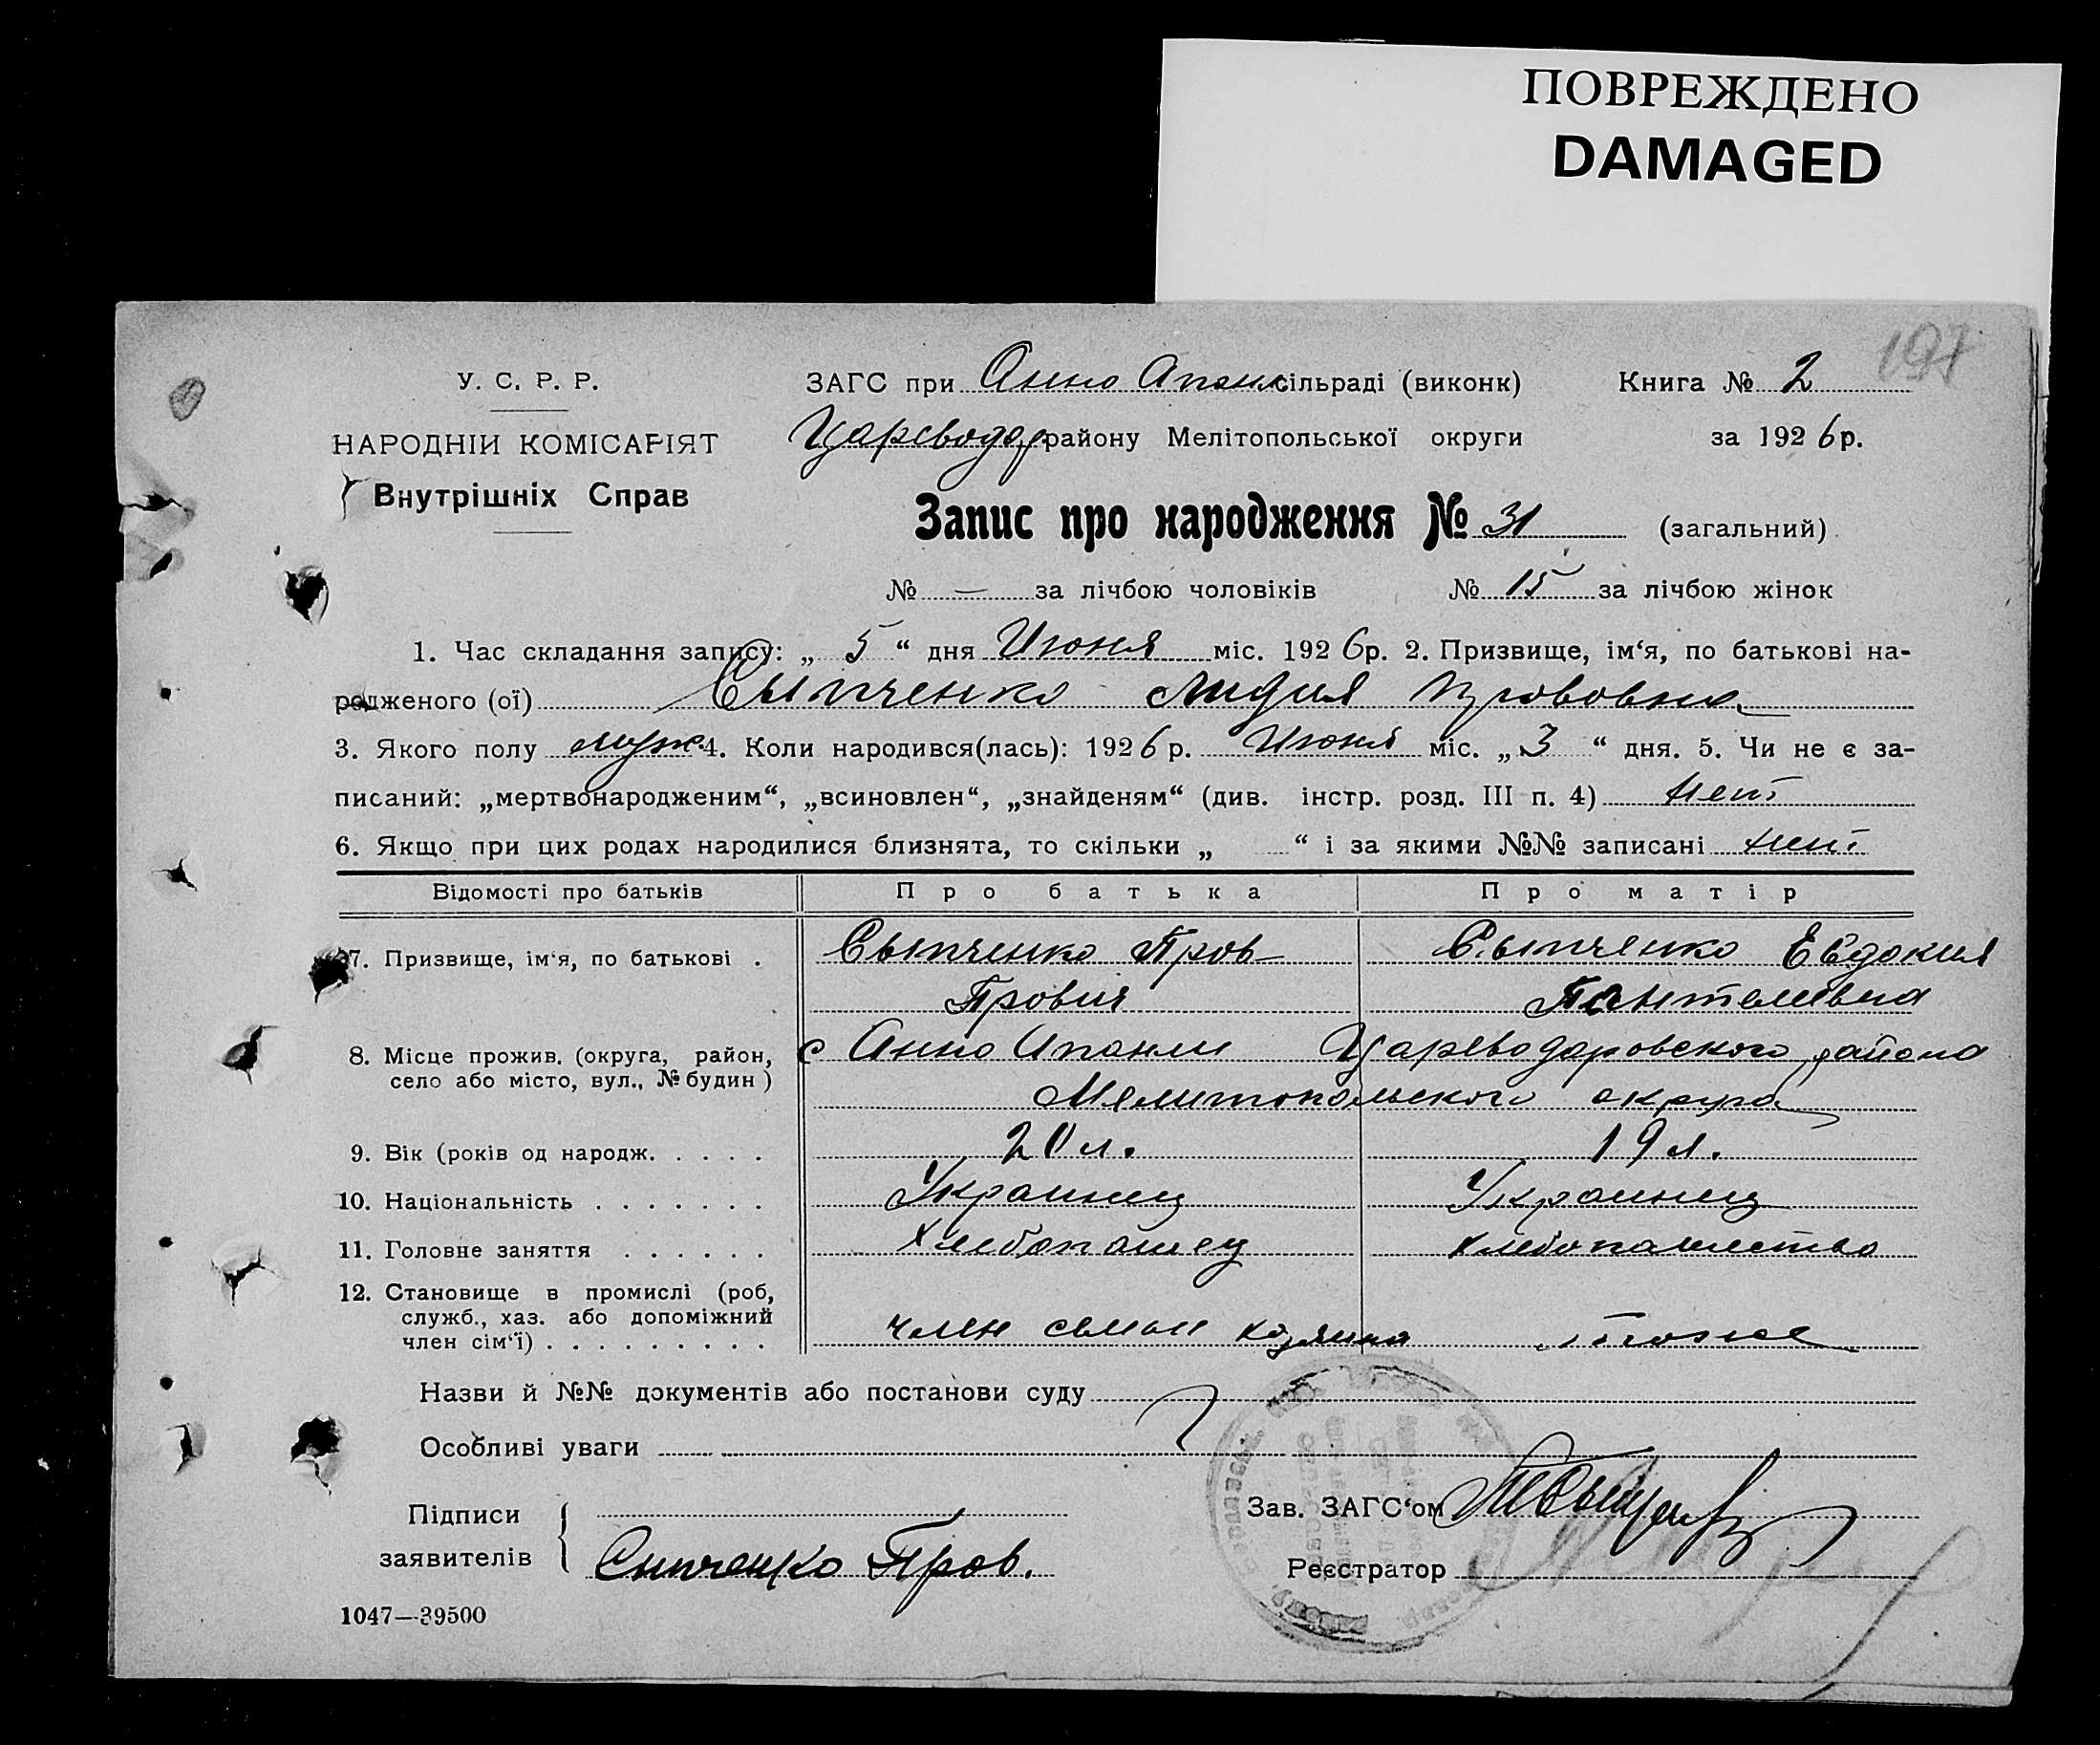 ПОВРЕЖДЕНО
DAMAGED
197
У. С. Р. Р.
ЗАГС при Анно Апанл сільраді (виконк)
Книга № 2
НАРОДНІЙ КОМІСАРІЯТ
Цареводар району Мелітопольської округи
за 1926р.
Внутрішніх Справ
Запис про народження № 31 (загальний)
№ — за лічбою чоловіків № 15 за лічбою жінок
1. Час складання запису: „ 5 “ дня Июня міс. 1926р. 2. Призвище, ім‘я, по батькові на-
родженого (ої) Сыпченко Лидия Прововна
3. Якого полу муж. 4. Коли народився(лась): 1926р. Июня міс. „ 3 “ дня. 5. Чи не є за-
писаний: „мертвонародженим“, „всиновлен“, „знайденям“ (див. інстр. розд. III п. 4) нет
6. Якщо при цих родах народилися близнята, то скільки „ “ і за якими №№ записані нет
Відомості про батьків Про батька Про матір
7. Призвище, ім‘я, по батькові . Сыпченко Пров Сыпченко Евдокия
Прович Пантелевна
8. Місце прожив. (округа, район, с Анно Апанли Цареводаровского района
село або місто, вул., № будин) Мелитопольского округа
9. Вік (років од народж. . . . . 20 л. 19 л.
10. Національність . . . . . . . Украинец Украинец
11. Головне заняття . . . . . . Хлебопашец Хлебопашество
12. Становище в промислі (роб,
служб., хаз. або допоміжний
член сім‘ї) . . . . . . . . . член семьи хозяина тоже
Назви й №№ документів або постанови суду
Особливі уваги
Підписи
заявителів
Зав. ЗАГС‘ом
Сипченко Пров.
Реєстратор
1047—39500